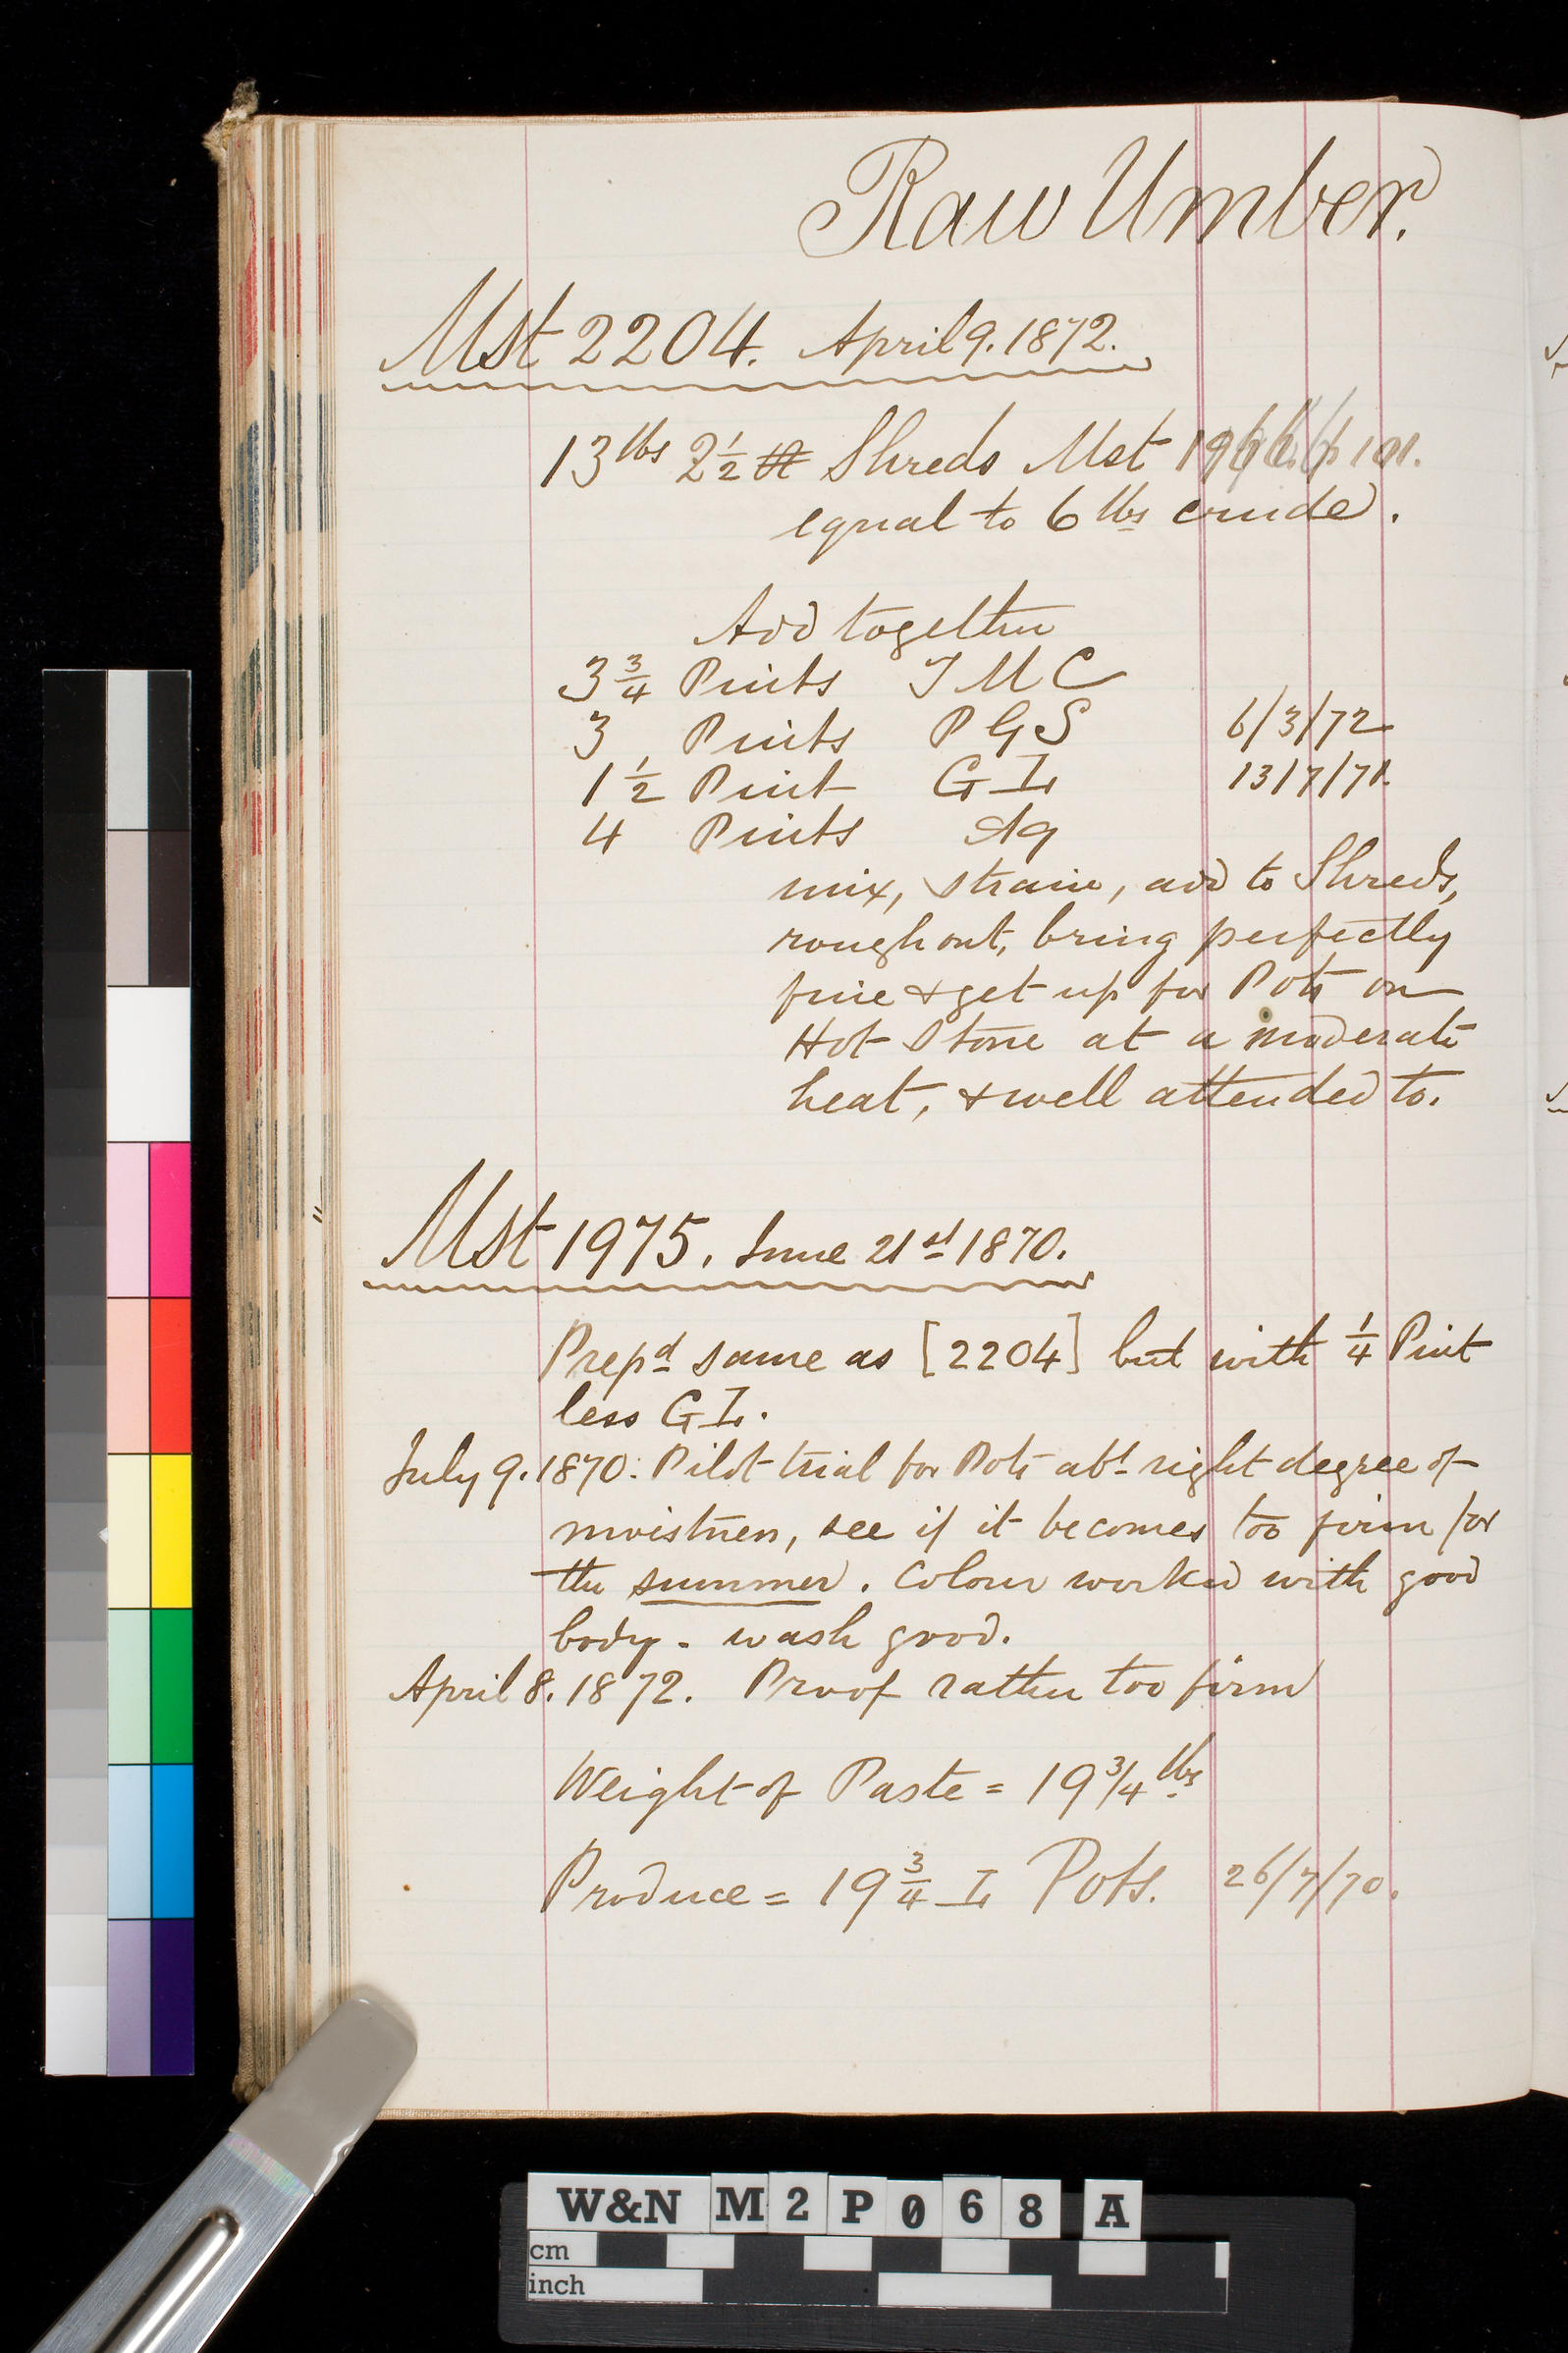 Raw Umber.
Mst 2204. April 9. 1872.
13 lbs 2½ Shreds Mst
equal to 6 lbs crude.
Add together
3¾ Pints T M C
3 Pints P G S 6/3/72
1½ Pint G I 13/7/71.
4 Pints Aq
mix, strain, add to Shreds,
rough out, bring perfectly
fine & get up for Pots on
Hot Stone at a moderate
heat, & well attended to.
Mst 1975. June 21st 1870.
Prepd same as [2204] but with ¼ Pint
less G I.
July 9. 1870. Pilot trial for Pots abt right degree of
moistness, see if it becomes too firm for
the summer. Colour worked with good
body - wash good.
April 8. 1872. Proof rather too firm
Weight of Paste = 19¾ lbs
Produce = 19¾ I Pots. 26/7/70.
W&N M2P068 A
cm
inch